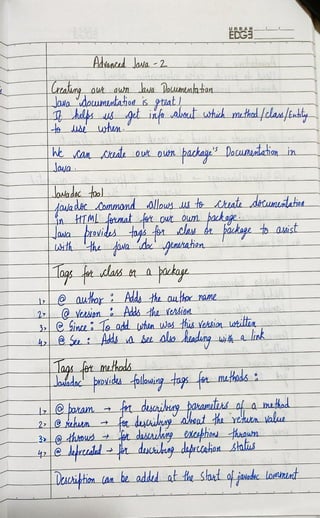 URBAN
EDGE
Advanced Java - 2
Creating our own Java Documentation
Java documentation is great!
It helps us get info about which method/class/Entity
to use when.
We can create our own package's Documentation in
Java.
Javadoc tool
javadoc command allows us to create documentation
in HTML format for our own package.
Java provides tags for class or package to assist
with the java doc generation
Tags for class or a package
1> @ author : Adds the author name
2> @ version : Adds the version
3> @ Since : To add when was this version written
4> @ See : Adds a see also heading with a link
Tags for methods
Javadoc provides following tags for methods :
1> @ param → for describing parameters of a method
2> @ return → for describing about the return value
3> @ throws → for describing exceptions thrown
4> @ deprecated → for describing deprecation status
Description can be added at the start of javadoc comment